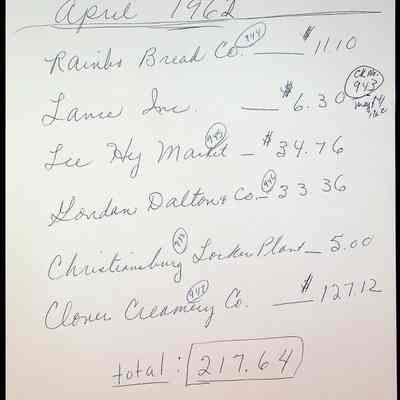 April 1962
Rainbo Bread Co. 944 — $11.10
Lance Inc. — $6.30 CK No. 943 May 14
Lee Hy Market 945 — $34.76
Gordan Dalton & Co. — 33 36
Christiansburg Locker Plant — 5.00
Clover Creamery Co. — $127.12
total: 217.64